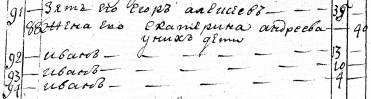 91 Зять его Егоръ алексѣевъ 39
жена его екатерина андреева 90
у них дети
92 иванъ 13
93 иванъ 10
94 иванъ 9